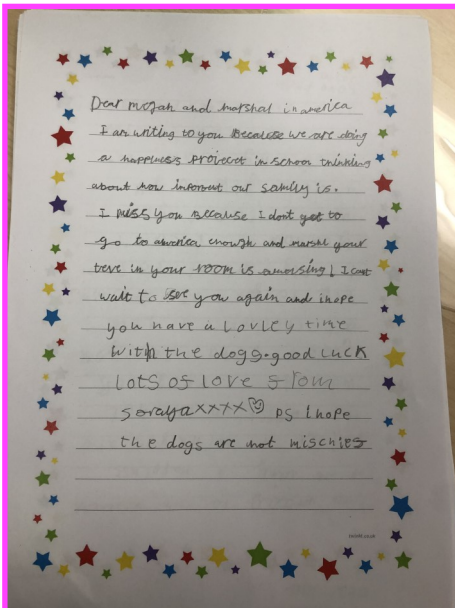 Dear megah and marshal in america
I am writing to you Because we are doing
a happiness projecet in school thinking
about how imporent our family is.
I miss you Because I dont get to
go to america enough and your
teve in your room is amorsing! I cant
wait to see you again and ihope
you have a Lovley time
with the dogg.good luck
Lots of love from
soraya xxxx PS I hope
the dogs are not mischies